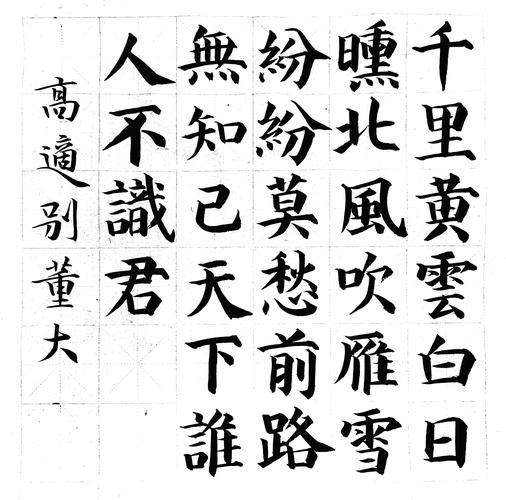 千里黄雲白日
曛北風吹雁雪
紛紛莫愁前路
無知己天下誰
人不識君
高適別董大